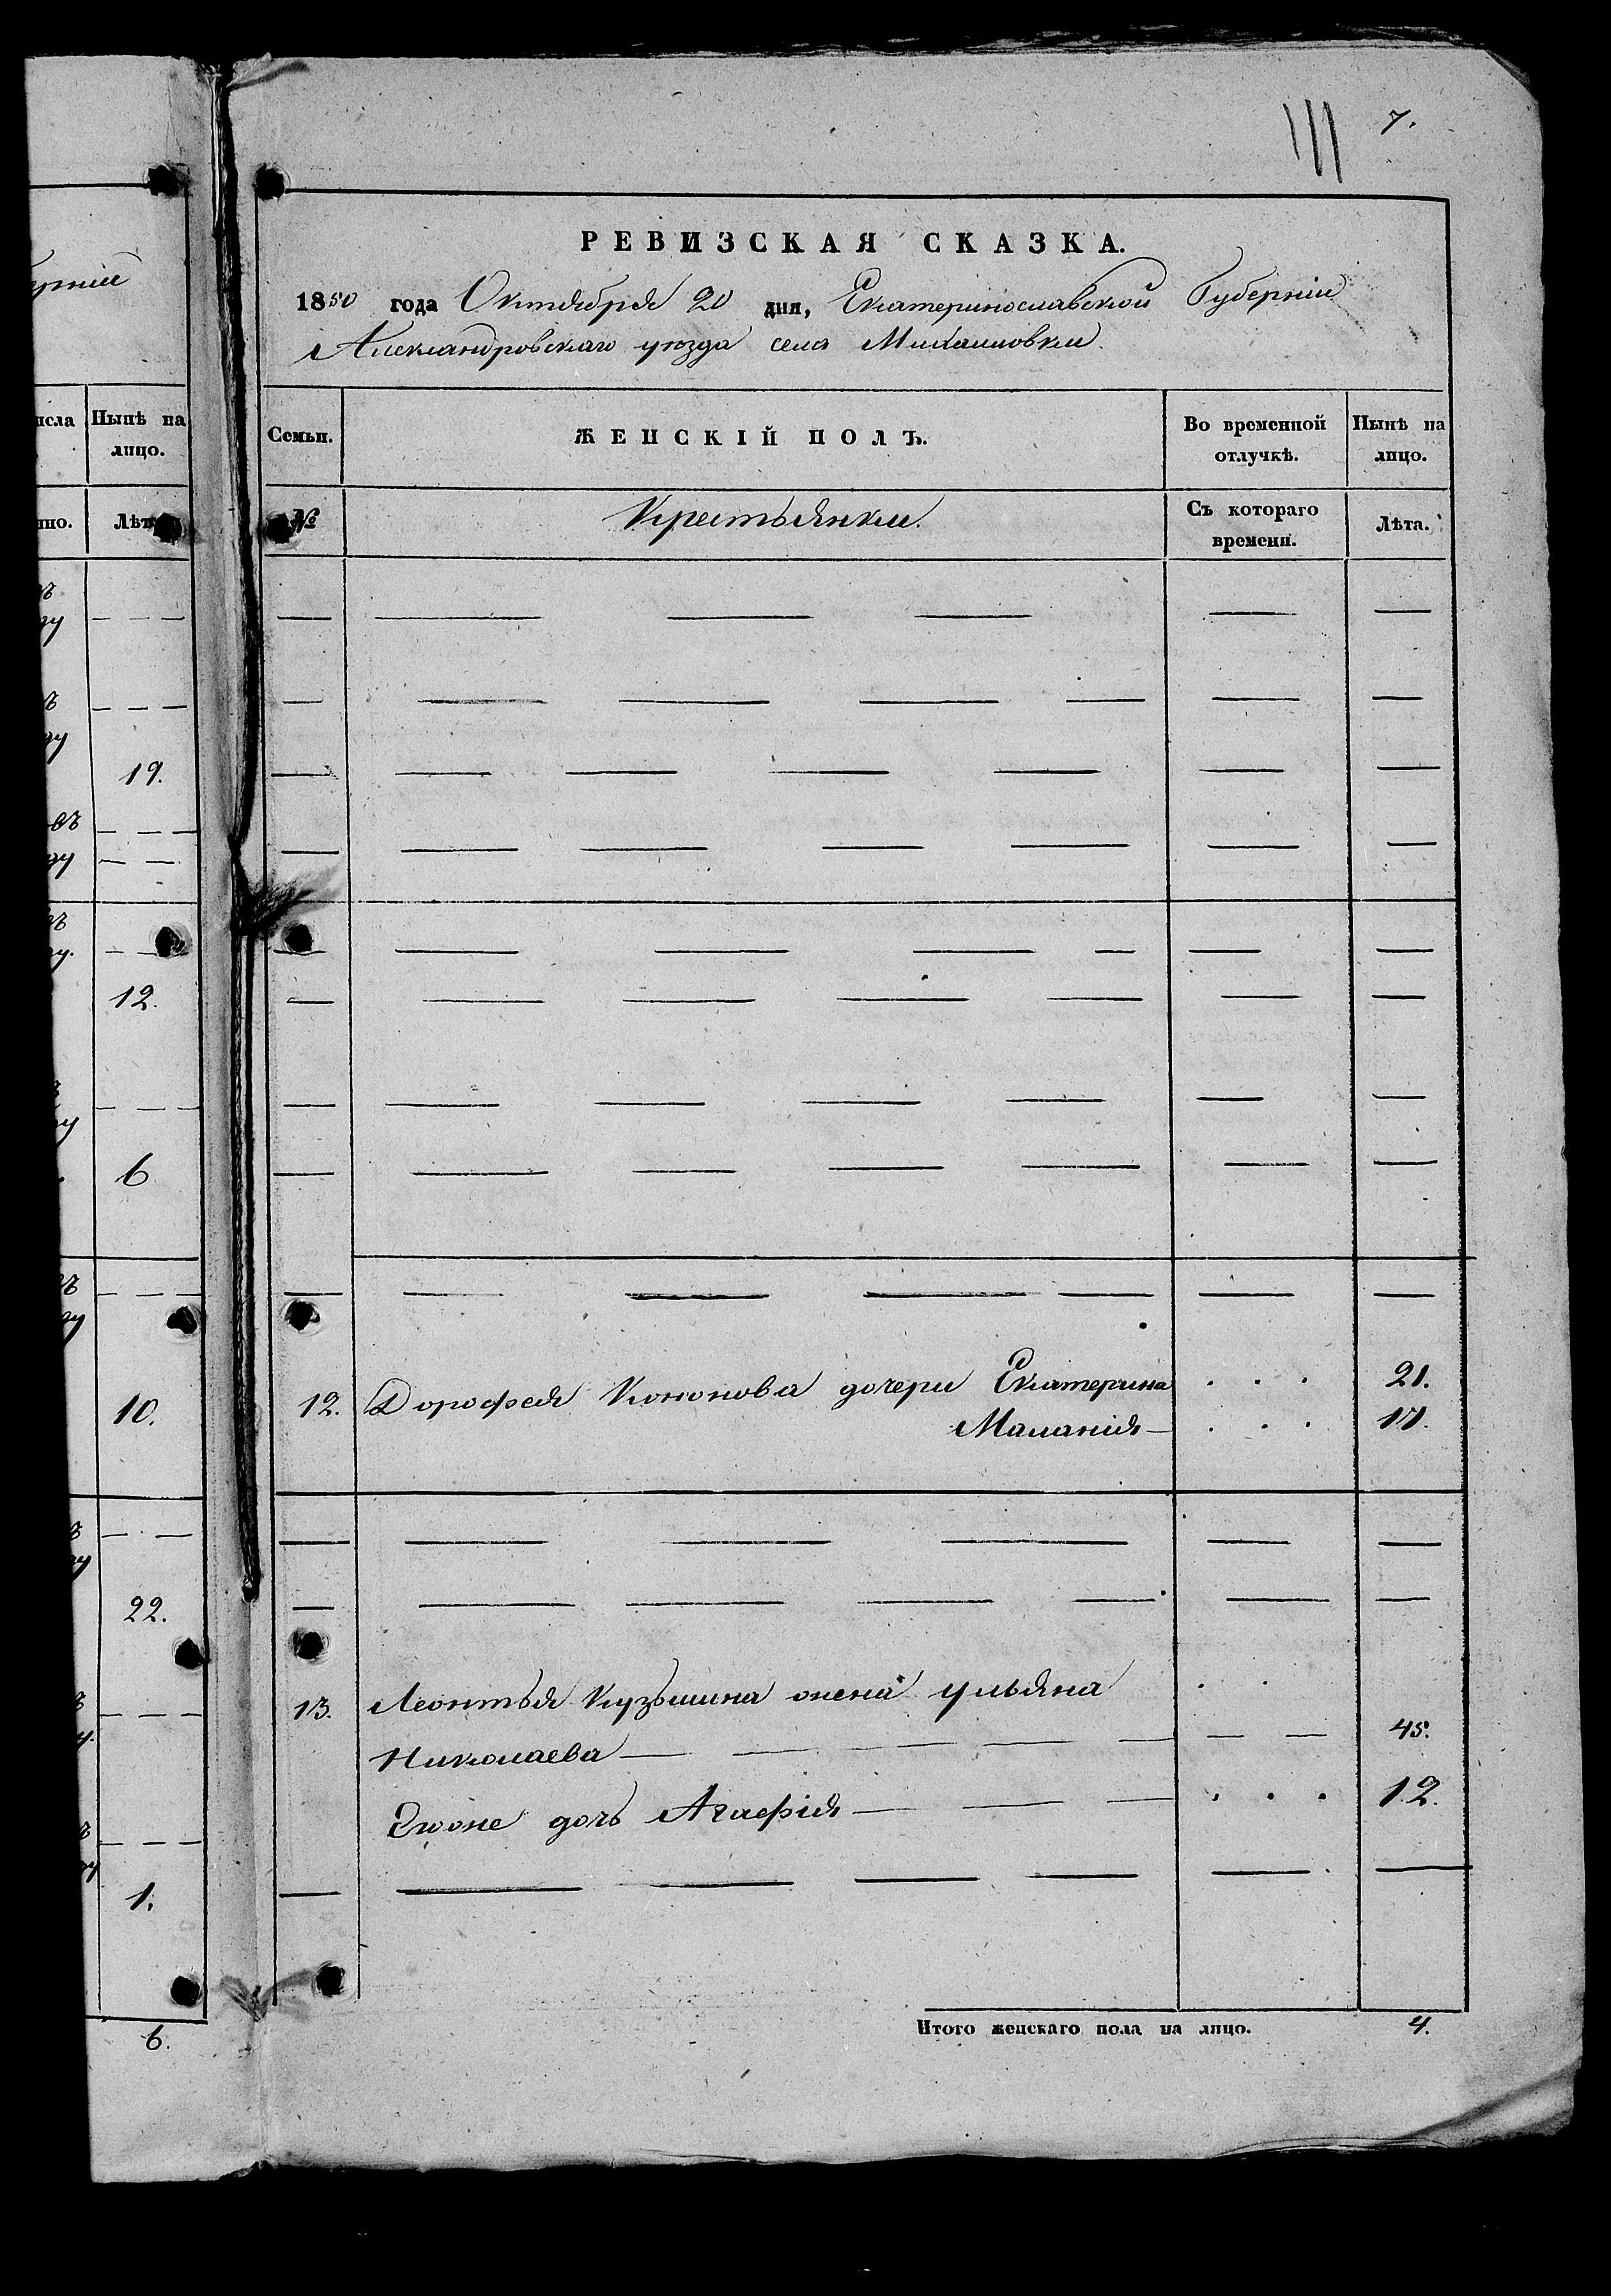 7.
РЕВИЗСКАЯ СКАЗКА.
1850 года Октября 20 дня, Екатеринославской Губерніи
Александровскаго уезда села Михайловки.
Нынѣ на
лицо.
Лѣта
19.
12.
6
10.
22.
1.
6.
Семьи. ЖЕНСКІЙ ПОЛЪ. Во временной Нынѣ на
отлучкѣ. лицо.
№ Крестьянки. Съ котораго Лѣта.
времени.
12. Дорофея Кононова дочери Екатерина 21.
Маланія 17.
13. Леонтья Кузьмина жена Ульяна
Николаева 45.
Егоже дочь Агафія 12.
Итого женскаго пола на лицо. 4.